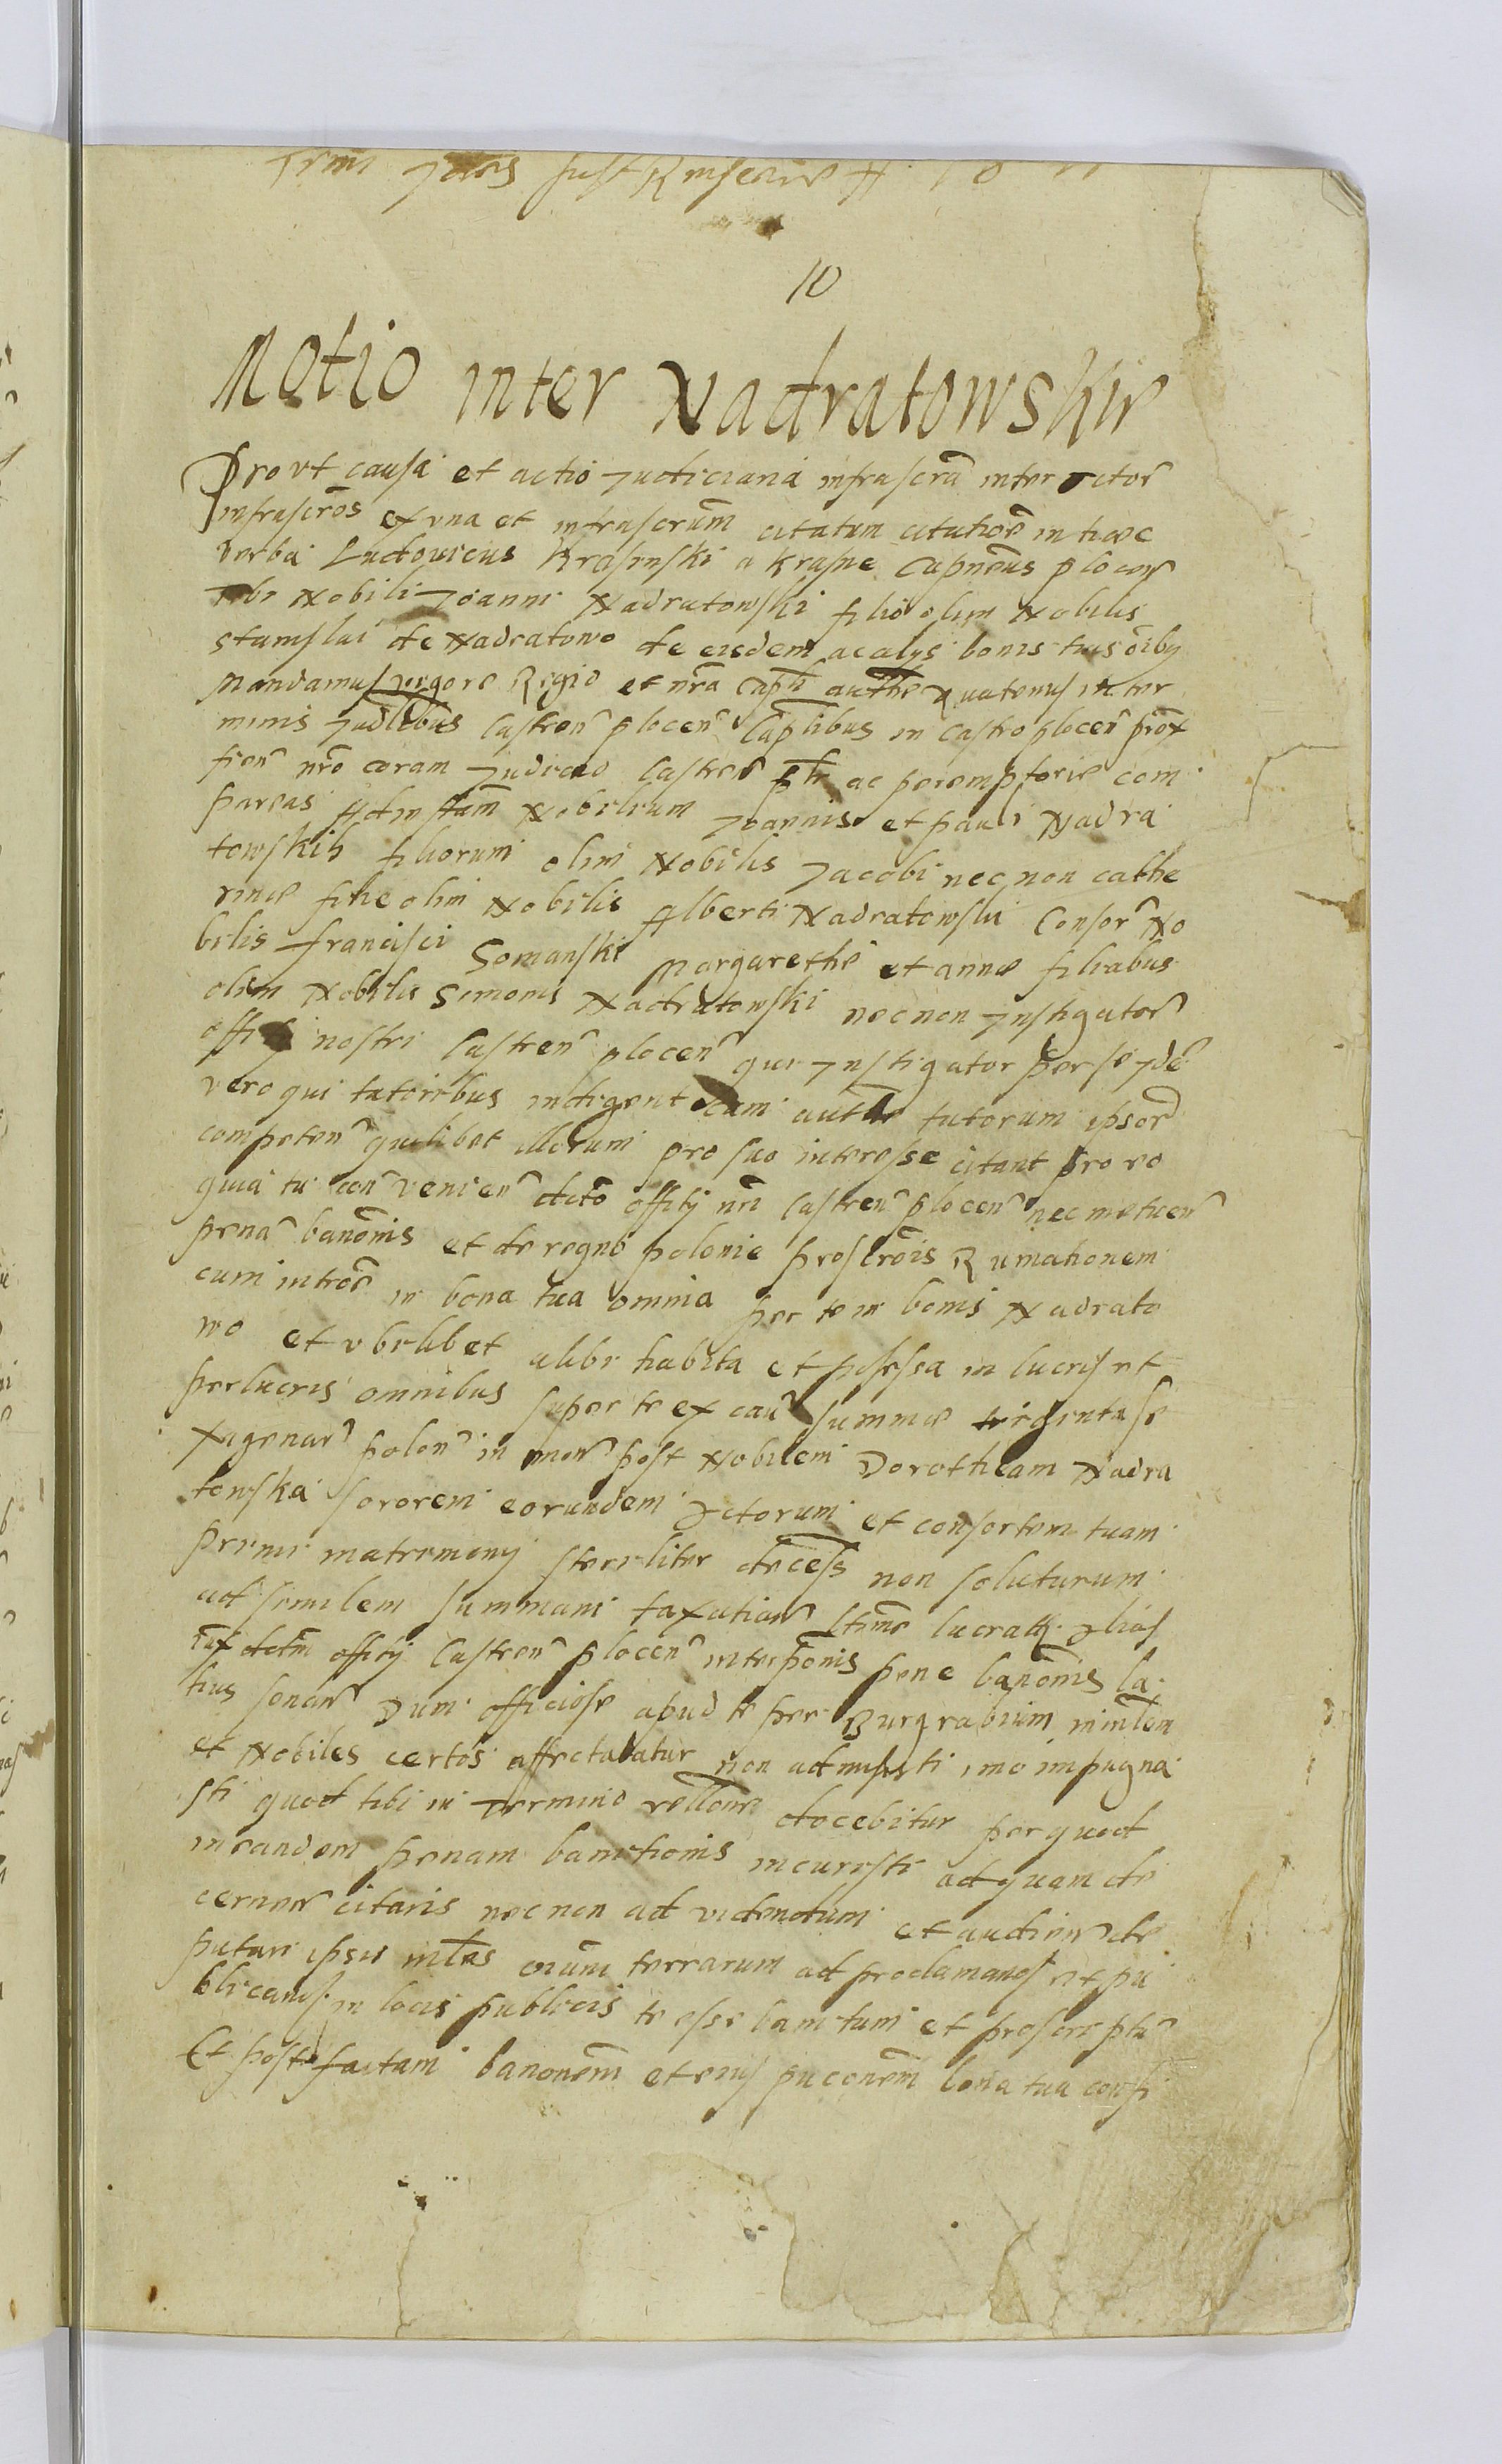 10
Motio inter Nadratowskie
Prout causa et actio Judiciaria infrascrã inter Actor
infrascros ex una et infrascrum citatum citatiõe in haec
verba Ludovicus Krasinski a Krasne Capneus plocen
Tibi Nobili Joanni Nadratowski filio olim Nobilis
Stanislai de Nadratowo de eisdem ac alys bonis tuis oibq
Mandamus vigore Regio et nrã Capli authe Quatenus in ter
minis Judlibus Castren plocen Caplibus in Castro plocen prox
fien nro coram Judicio Castren plr ac peremptorie com
pareas Ad instam Nobilium Joannis et pauli Nadra
towskih filiorum olim Nobilis Jacobi nec non cathe
rinae filie olim Nobilis Alberti Nadratowski Consor No
bilis Francisci Somanski Margarethe et annae filiabus
olim Nobilis Simonis Nadratowski necnon Instigator
offi nostri Castren plocen qui Instigator per se Ide
vero qui tutoribus indigent cum authe tutorum ipsor
competen quilibet illorum pro suo interesse citant pro eo
quia tu con venien dcto offity nri Castren plocen nec metuen
pena banonis et de regno polonie proscrois Rumationem
cum introe in bona tua omnia per te in bonis Nadrato
wo et ubilibet alibi habita et possessa in lucris et
perlucris omnibus super te ex cau summae triginta se
xagenar polon in mon post Nobilem Dorotheam Nadra
towska sororem eorundem Actorum et consortem tuam
primi matrimony steriliter decess non soluturum
ad similem summam taxation ltime lucratq Alias
iux dctm offity Castren plocen interponis pene banonis la
tius sonan Dum officiose apud te per Burgrabium minlem
et Nobiles certos affectabatur non admisisti imo impugna
sti quod tibi in Termino rellone docebitur per quod
in eandem penam banitionis incuristi ad quam de
cernen citaris necnon ad videndum et audien de
putari ipsis mles oium terrarum ad proclamand et pu
blicand in locis publicis te esse banitum et proscriptu
Et post factam banonem et eius puconem bona tua confi